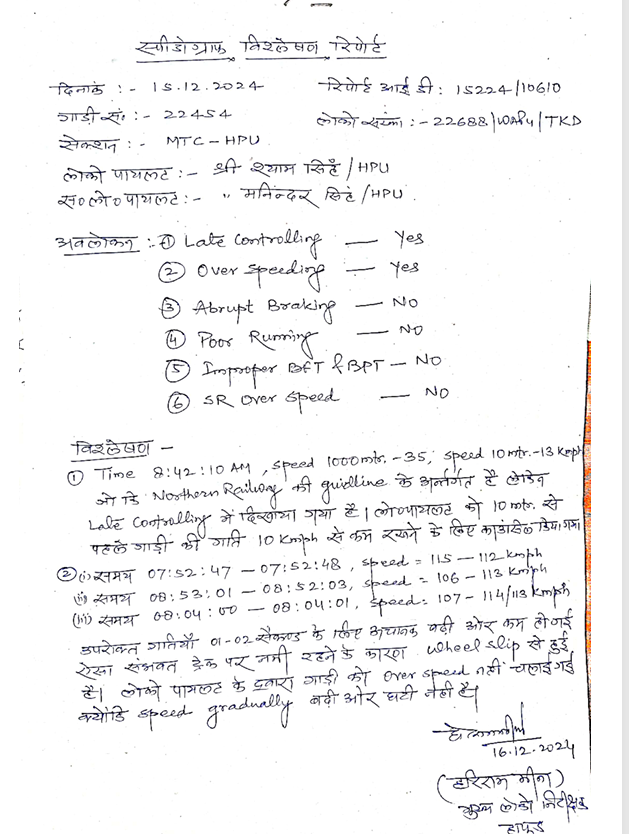 स्पीडोग्राफ विश्लेषण रिपोर्ट
दिनाकं :- 15.12.2024 रिपोर्ट आई डी : 15224/10610
गाड़ी सं० :- 22454 लोको संख्या :- 22688/WAP4/TKD
सेक्शन :- MTC-HPU
लोको पायलट :- श्री श्याम सिहँ /HPU
स०लो०पायलट :- " मनिन्दर सिहं /HPU
अवलोकन :- ① Late Controlling — Yes
② Over Speeding — Yes
③ Abrupt Braking — NO
④ Poor Running — NO
⑤ Improper BFT & BPT — NO
⑥ SR Over Speed — NO
विश्लेषण —
① Time 8:42:10 AM, Speed 1000 mtr. -35, Speed 10 mtr. -13 Kmph
जो कि Northern Railway की guidline के अर्न्तगत है लेकिन
Late Controlling में दिखाया गया है। लो०पायलट को 10 mtr. से
पहले गाड़ी की गति 10 Kmph से कम रखने के लिए काउंसिल किया गया
② (i) समय 07:52:47 — 07:52:48, Speed = 115 — 112 kmph
(ii) समय 08:53:01 — 08:52:03, Speed = 106 — 113 kmph
(iii) समय 08:04:00 — 08:04:01, Speed = 107 - 114/113 kmph
उपरोक्त गतियाँ 01-02 सैकण्ड के लिए अचानक बढी और कम हो गई
ऐसा संभवत ट्रेक पर नमी रहने के कारण wheel slip से हुई
है। लोको पायलट के द्वारा गाड़ी को over speed नहीं चलाई गई
क्योंकि speed gradually बढी और घटी नही है।
16.12.2024
(हरिराम मीना)
मुख्य लोको निरीक्षक
हापुड़